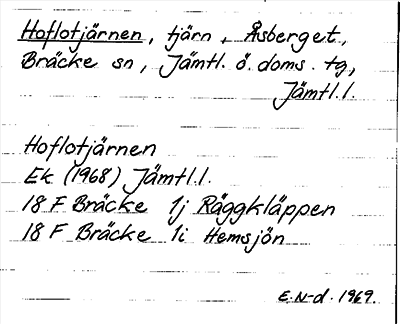 Hoflotjärnen, tjärn, Åsberget,
Bräcke sn, Jämtl. ö. doms. tg,
Jämtl.l.
Hoflotjärnen
Ek (1968) Jämtl.l.
18 F Bräcke 1j Räggkläppen
18 F Bräcke 1i Hemsjön
E.N-d. 1969.